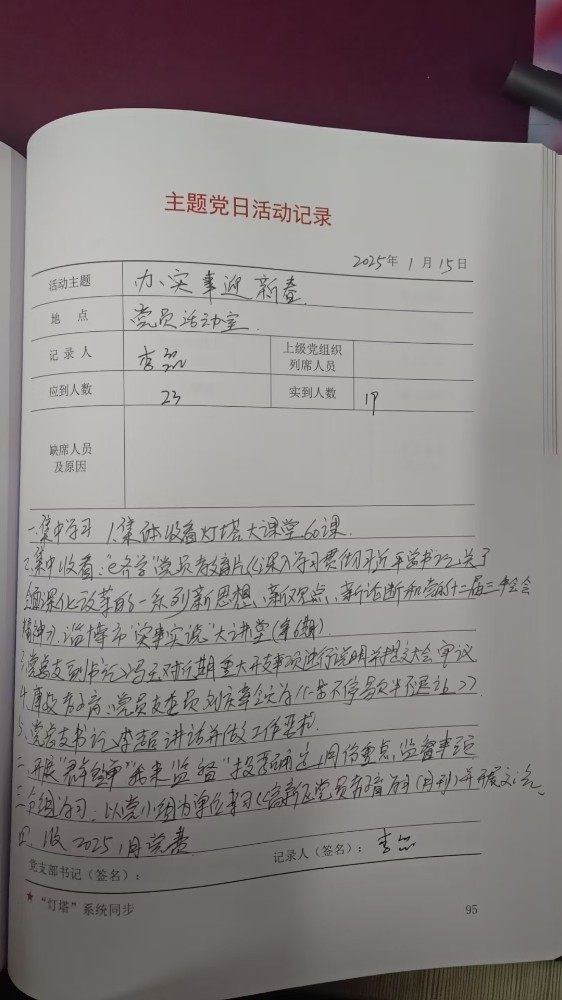 主题党日活动记录
2025年1月15日
活动主题 办实事迎新春
地点 党员活动室
记录人 李 上级党组织列席人员
应到人数 23 实到人数 19
缺席人员及原因
一.集中学习 1.集体收看灯塔大课堂60课
2.集中收看:"e齐学"党员教育片《深入学习贯彻习近平总书记关于
全面深化改革的一系列新思想、新观点、新论断和党的二十届三中全会
精神》.淄博市"实事实说"大讲堂(第6期)
3.党总支副书记 对近期重大开支事项进行说明并提交大会审议
4. 教育:党员 刘庆 《一步不停 半步不退》
5.党总支书记李超讲话并做工作要求
二.开展" 我来监督"投票 1月份重点监督事项
三.分组学习.以党小组为单位学习《高新区党员教育 (月刊)并开展交流
四.收2025 1月党费
党支部书记(签名): 记录人(签名):李
★"灯塔"系统同步 95